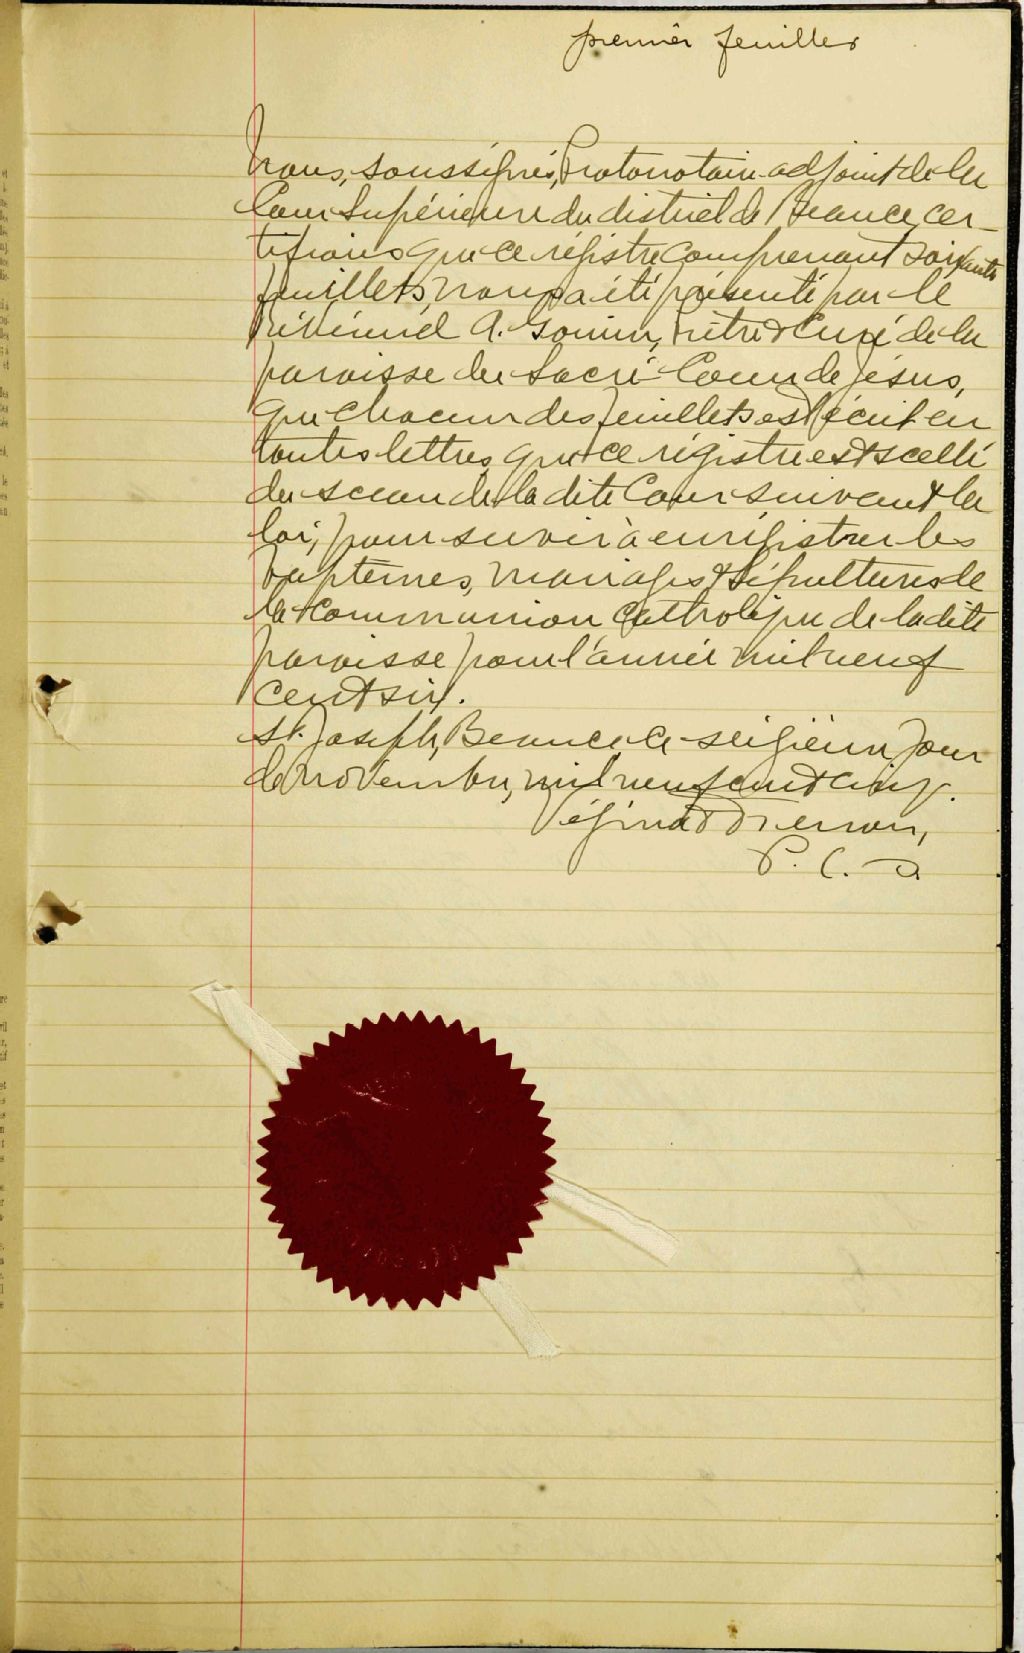 premier feuillet
Nous, soussignés, Protonotaire adjoint de la
Cour Supérieure du district de Beauce, cer-
tifions que ce régistre comprenant soixante
feuillets, nous a été présenté par le
Révérend A. Gouin, Prêtre & Curé de la
paroisse du Sacré-Coeur de Jésus,
que chacun des feuillets est écrit en
toutes lettres, que ce régistre est scellé
du sceau de la dite Cour suivant la
loi, pour servir à enrégistrer les
baptêmes, mariages & sépultures de
la communion Catholique de la dite
paroisse pour l'année mil neuf
cent six.
St. Joseph, Beauce, ce seizième jour
de novembre, mil neuf cent cinq.
P. C. S.